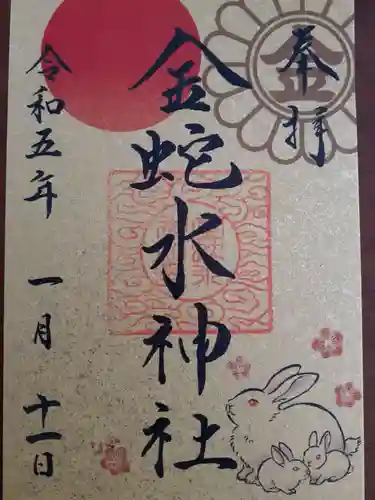 奉拝
金
金蛇水神社
令和五年 一月 十一日